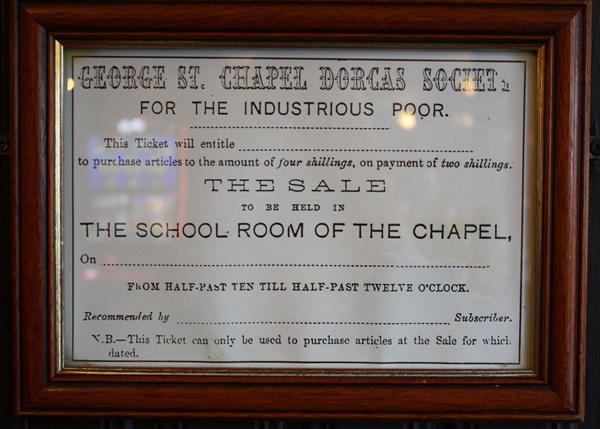 GEORGE ST. CHAPEL DORCAS SOCIETY
FOR THE INDUSTRIOUS POOR.
This Ticket will entitle
to purchase articles to the amount of four shillings, on payment of two shillings.
THE SALE
TO BE HELD IN
THE SCHOOL ROOM OF THE CHAPEL,
On
FROM HALF-PAST TEN TILL HALF-PAST TWELVE O'CLOCK.
Recommended by Subscriber.
N.B.—This Ticket can only be used to purchase articles at the Sale for which
dated.